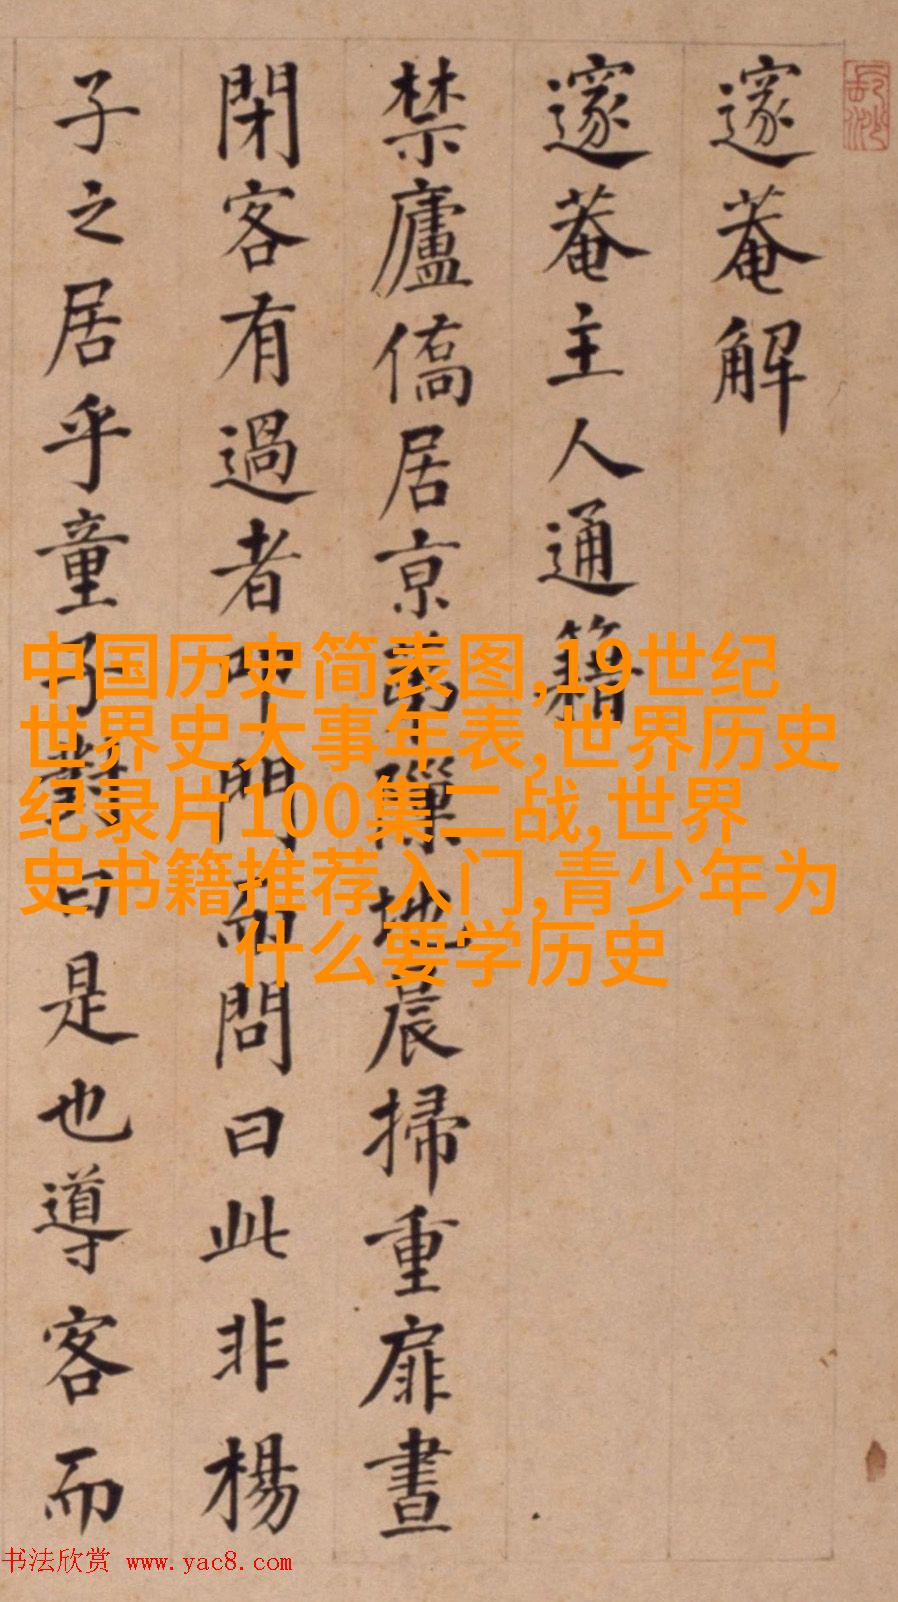 邃菴解
邃菴主人通籍
禁廬僑居京第隟地晨掃重扉晝
閉客有過者叩門而問曰此非楊
子之居乎童子對曰是也導客而
中国历史简表图,19世纪
世界史大事年表,世界历史
纪录片100集二战,世界
史书籍推荐入门,青少年为
什么要学历史
书法欣赏 www.yac8.com